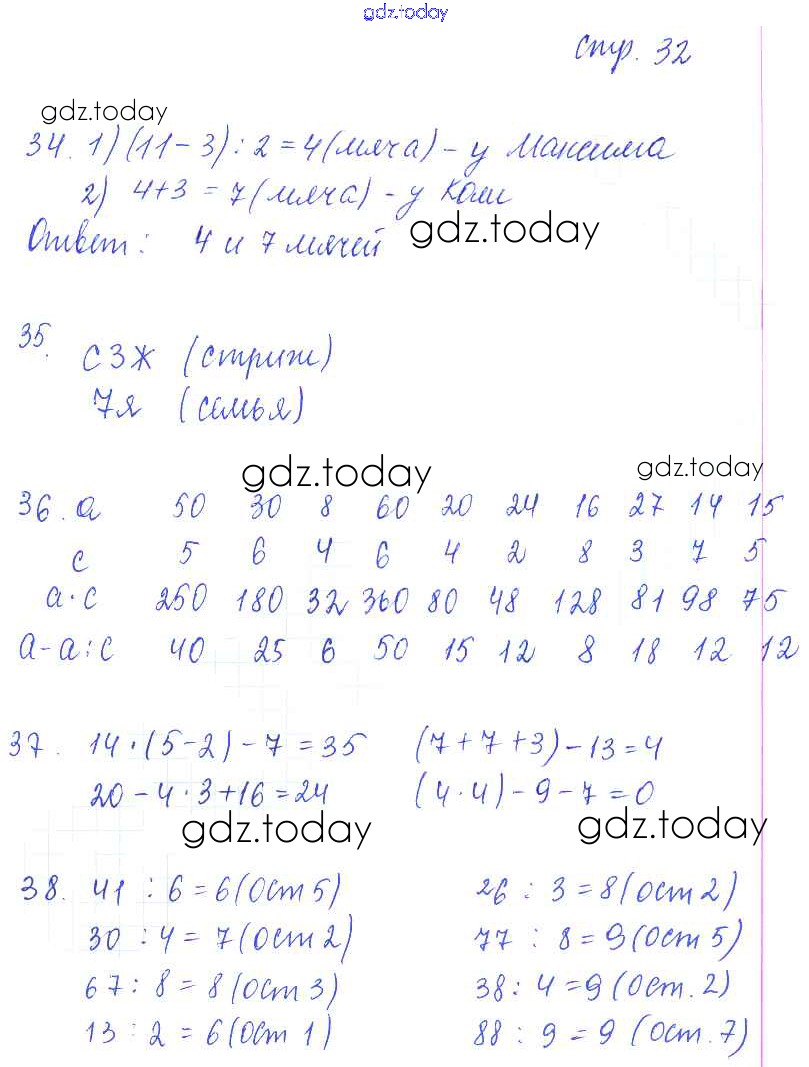 gdz.today
Стр. 32
gdz.today
34. 1) (11 - 3) : 2 = 4 (мяча) - у Максима
2) 4 + 3 = 7 (мяча) - у Коли
Ответ: 4 и 7 мячей
gdz.today
35.
С З Ж (стриж)
7я (семья)
gdz.today gdz.today
36. а 50 30 8 60 20 24 16 27 14 15
с 5 6 4 6 4 2 8 3 7 5
а · с 250 180 32 360 80 48 128 81 98 75
а - а : с 40 25 6 50 15 12 8 18 12 12
37. 14 · (5 - 2) - 7 = 35 (7 + 7 + 3) - 13 = 4
20 - 4 · 3 + 16 = 24 (4 · 4) - 9 - 7 = 0
gdz.today gdz.today
38. 41 : 6 = 6 (Ост 5) 26 : 3 = 8 (Ост 2)
30 : 4 = 7 (Ост 2) 77 : 8 = 9 (Ост 5)
67 : 8 = 8 (Ост 3) 38 : 4 = 9 (Ост. 2)
13 : 2 = 6 (Ост 1) 88 : 9 = 9 (Ост. 7)